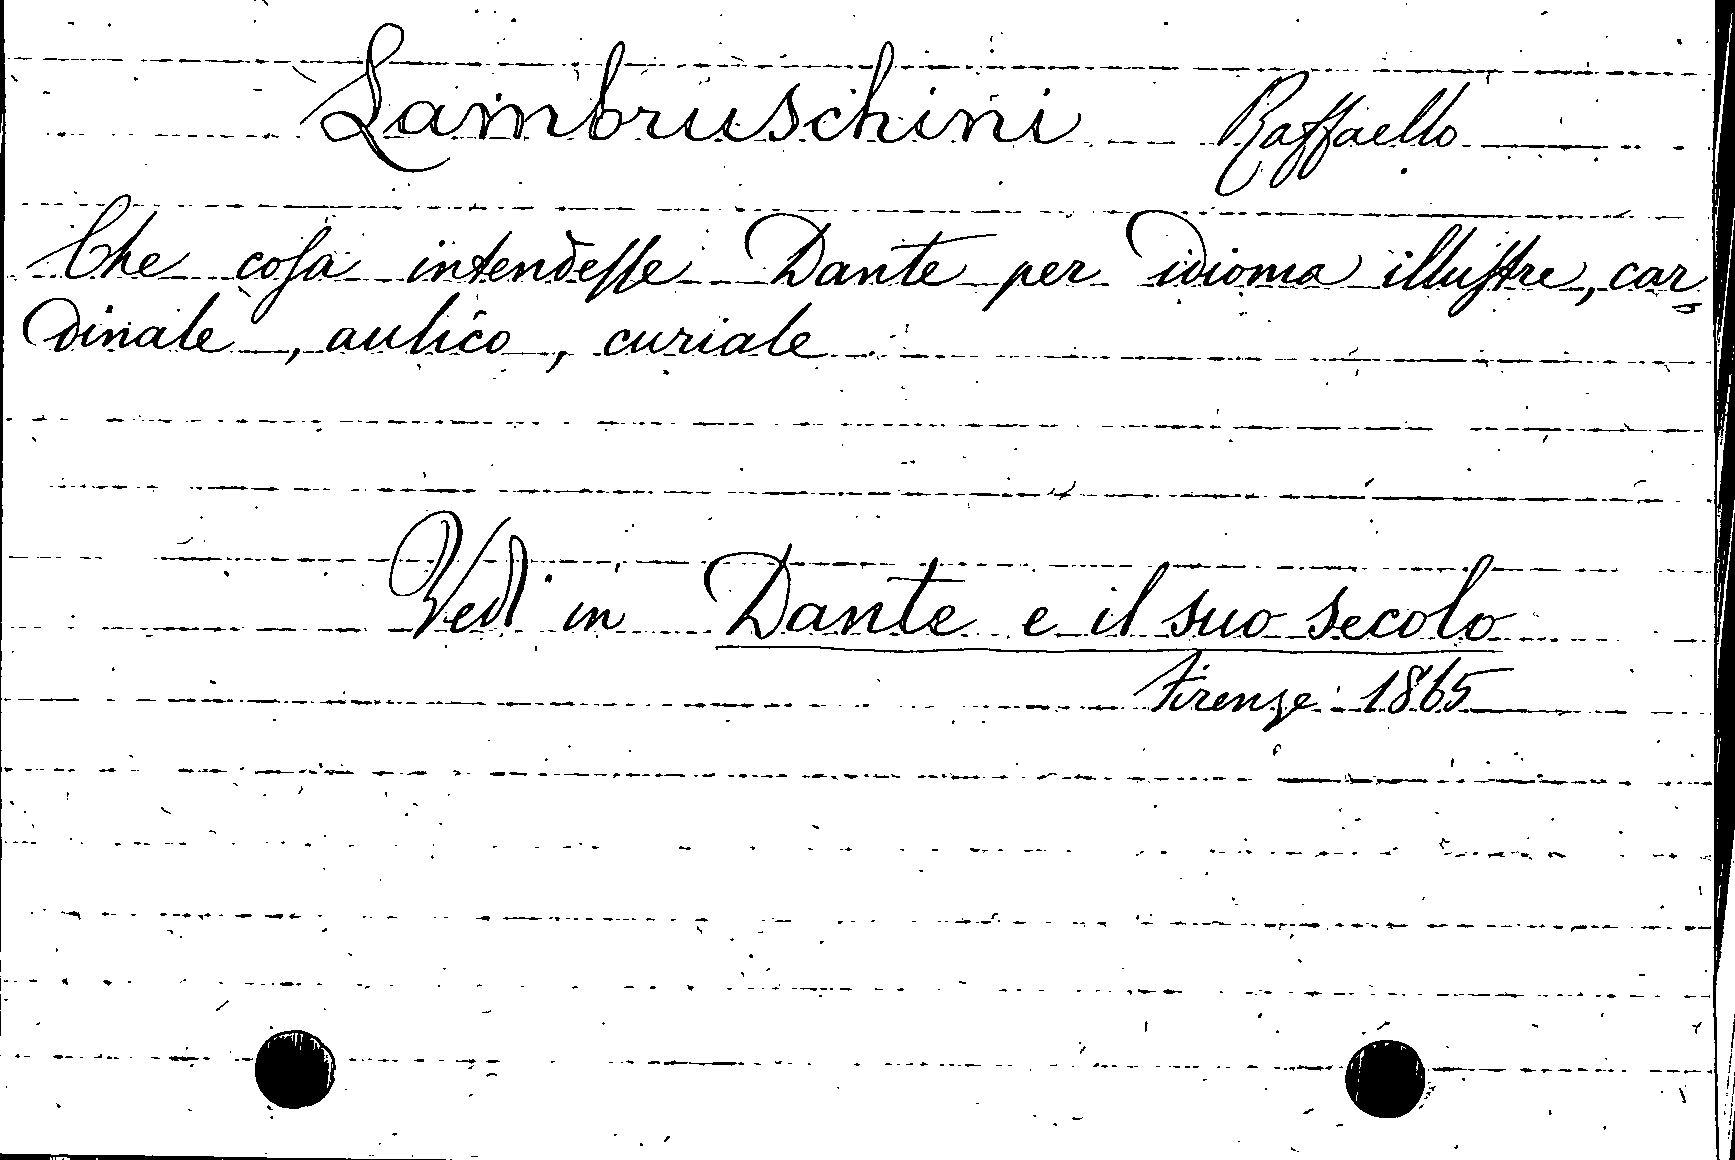 Lambruschini Raffaello
Che coſa intendeſſe Dante per idioma illuſtre, car=
dinale, aulico, curiale
Vedi in Dante e il suo secolo
Firenze 1865